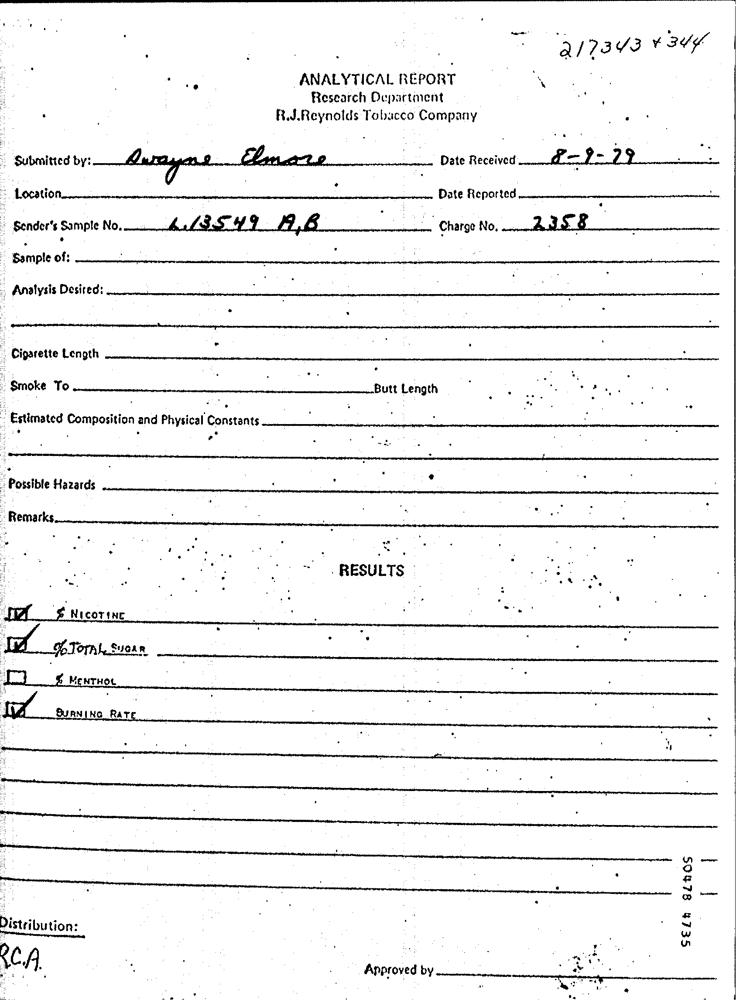 217343 + 344
ANALYTICAL REPORT
Research Department
R.J.Reynolds Tobacco Company
Submitted by: Dwayne Elmore Date Received 8-9-79
Location Date Reported
Sender's Sample No. L.13549 A,B Charge No. 2358
Sample of:
Analysis Desired:
Cigarette Length
Smoke To Butt Length
Estimated Composition and Physical Constants
Possible Hazards
Remarks
RESULTS
% NICOTINE
% TOTAL SUGAR
% MENTHOL
BURNING RATE
50478 4735
Distribution:
R.C.A.
Approved by